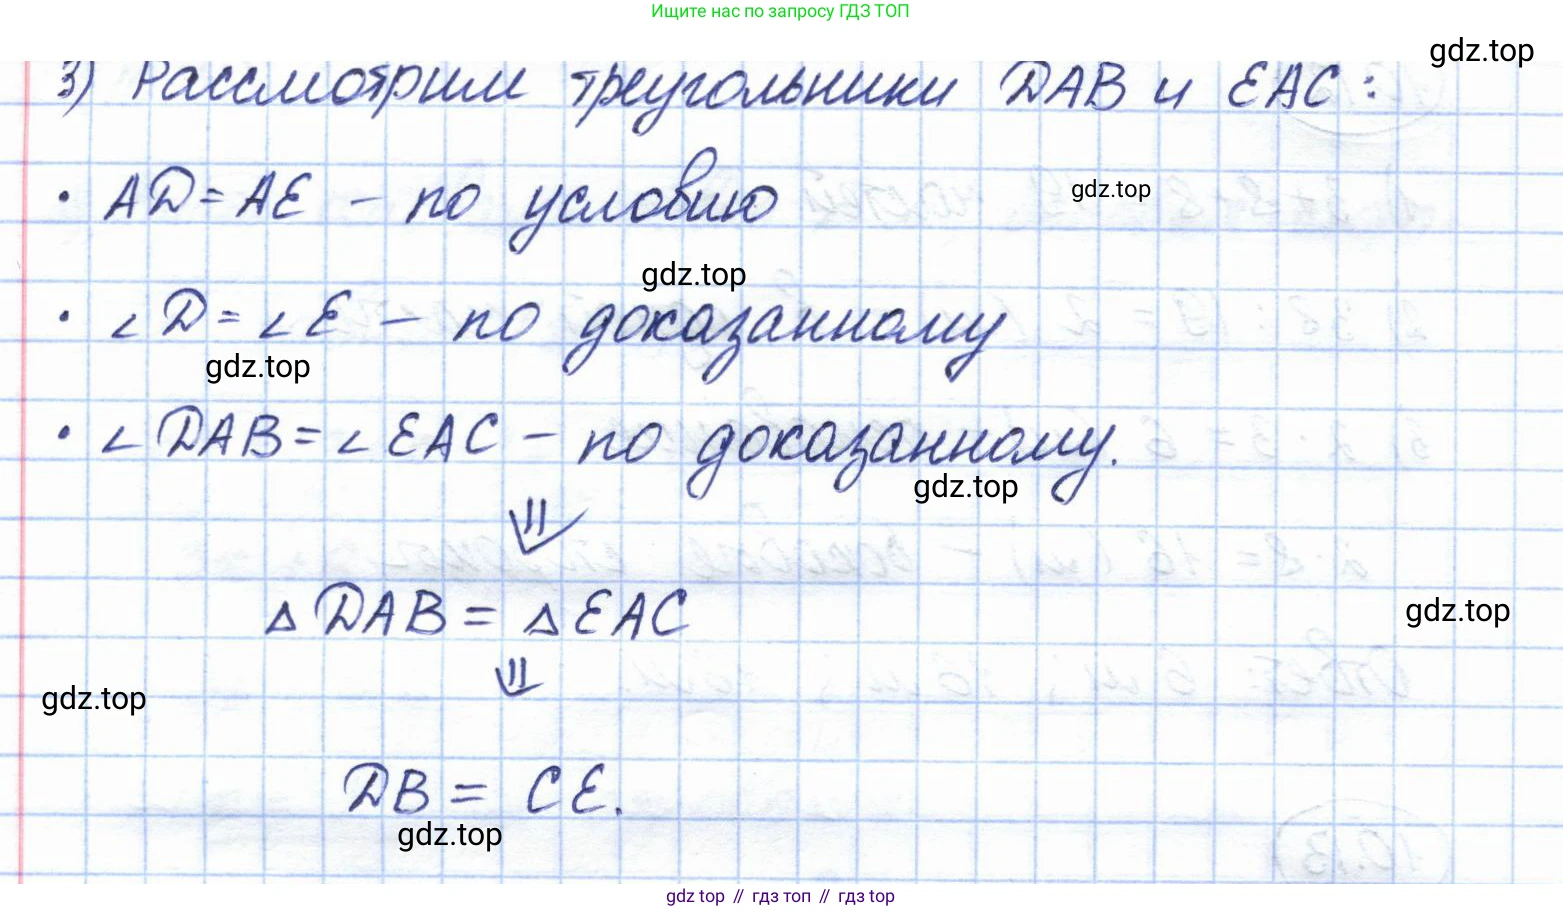 Ищите нас по запросу ГДЗ ТОП
gdz.top
3) Рассмотрим треугольники DAB и EAC:
• AD = AE – по условию
gdz.top
gdz.top
• ∠D = ∠E – по доказанному
gdz.top
• ∠DAB = ∠EAC – по доказанному.
gdz.top
⇓
△DAB = △EAC
gdz.top
⇓
gdz.top
DB = CE.
gdz.top
gdz top // гдз топ // гдз top